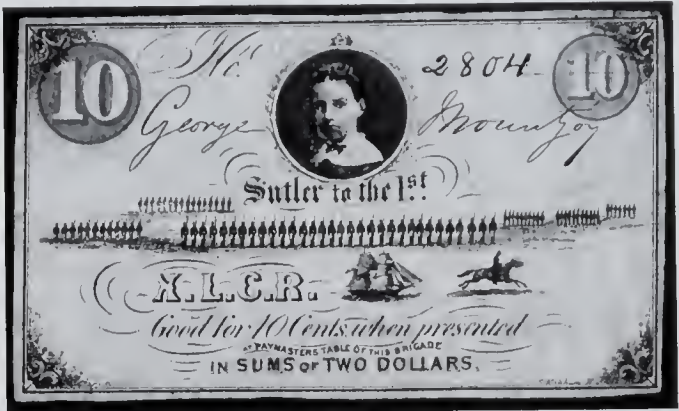 10 No. 2804 10
George Mountjoy
Sutler to the 1st
X.L.C.R.
Good for 10 Cents, when presented
AT PAYMASTERS TABLE OF THIS BRIGADE
IN SUMS OF TWO DOLLARS.